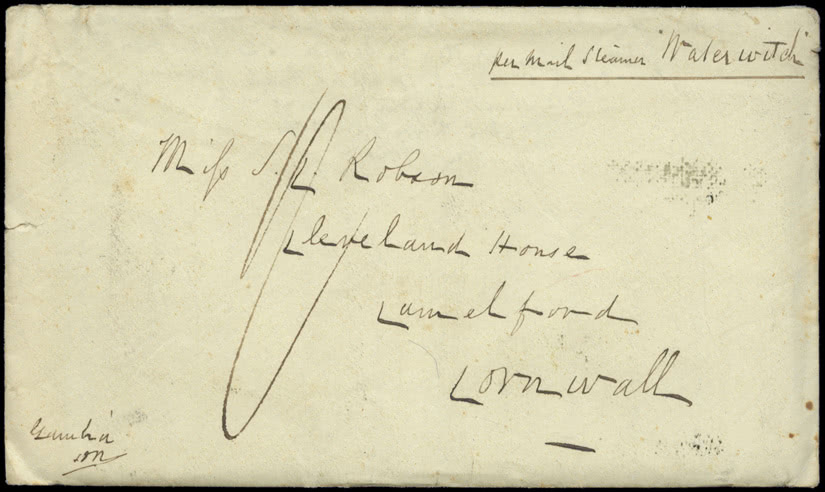 per Mail Steamer "Waterwitch"
Miss S. L. Robson
Cleveland House
Camelford
Cornwall
Gambia